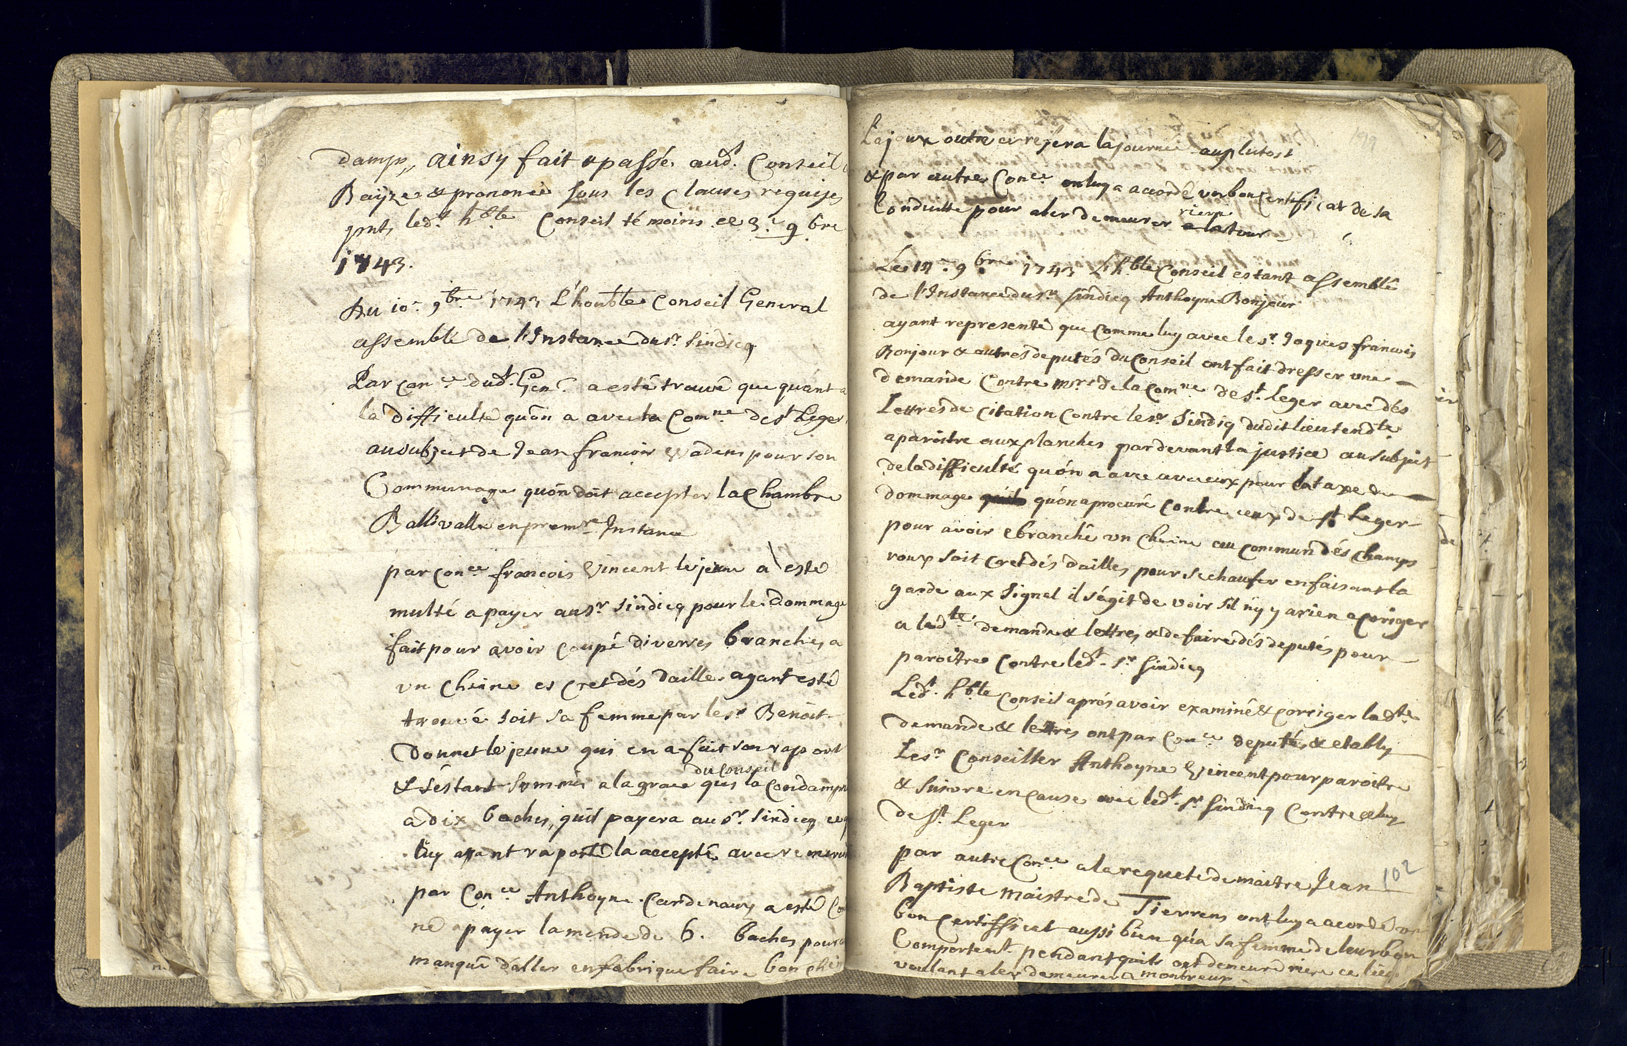 damp,, ainsy fait & passé aud.t Conseil
Baÿze & prononcé sous les Clauses requises
pnts led.t h.ble Conseil témoins ce 3.e 9bre
1743.
Du 10.e 9bre 1743 L'honble Conseil General
assemblé de l'Instance du Sr. Sindicq
Par con.ce dud.t Gen.l a esté trouvé que quant a
la difficulté qu'on a avec la Com.ne de st Leger
au subject de Jean francois pour son
Communage qu'on doit accepter la Chambre
Ballivalle en prem.re Instance
par con.ce francois Vincent le jeune a esté
multé a payer au sr Sindicq pour le Dommage
fait pour avoir coupé diverses branches a
un Chaine es Cret dés Dailles ayant esté
trouvé soit sa femme par le sr Benoit
Donnet le jeune qui en a fait son raport
& s'éstant somméz a la grace du Conseil qui la Condampné
a dix baches, quil payera au sr. Sindicq ce q
luy ayant raporté la accepté avec remerci
par Con.ce Anthoyne Cardenaux a esté Co
né a payer lamende de 6. baches pour
manqué d'aller en fabrique faire bon chem
Lajoux outre cerejera la journée au plutost
& par autre Con.ce on luy a accordé un bon Certificat de sa
Conduitte pour aler demeurer riere a la tour
Le 17.e 9bre 1743 L'hble Conseil estant assemblé
de l'Instance du sr. Sindicq Anthoyne Bonjour
ayant representé que comme luy avec le sr. Joques francois
Bonjour & autres deputés du Conseil ont fait dresser une
demande Contre mrs de la Com.ne de st. Leger avec dés
Lettres de Citation Contre le sr Sindiq dudit lieu tendte
a paroitre aux planches par devant la justice au subject
de la difficulté qu'on a avec avec eux pour la taxe du
dommage qu'on a procuré Contre ceux de st Leger
pour avoir ebranché un Chaine au Commun dés Champs
roux soit Cret dés dailles pour se chaufer en faisant la
garde aux Signel il s'agit de voir sil n'y y a rien a coriger
a ledte demande & lettres & de faire dés deputés pour
paroitre Contre led.t sr Sindicq
Led.t h.ble Conseil aprés avoir examiné & corriger ladte
demande & lettres ont par Con.ce deputés & etably
Le sr Conseiller Anthoyne Vincent pour paroitre
& suivre en cause avec led.t sr Sindicq Contre celuy
de st. Leger
par autre Con.ce a la requete de maitre Jean
102
Baptiste maistre de Tierrens ont luy a acordé un
bon Certifficat aussi bien qu'a sa femme de leur bon
Comportemt. pendant quils ont demeuré riere ce lieu
voullant aler demeurer a montreux